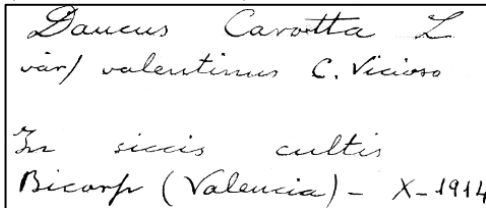 Daucus Carotta L
var/ valentinus C. Vicioso
In siccis cultis
Bicorp (Valencia) - X-1914